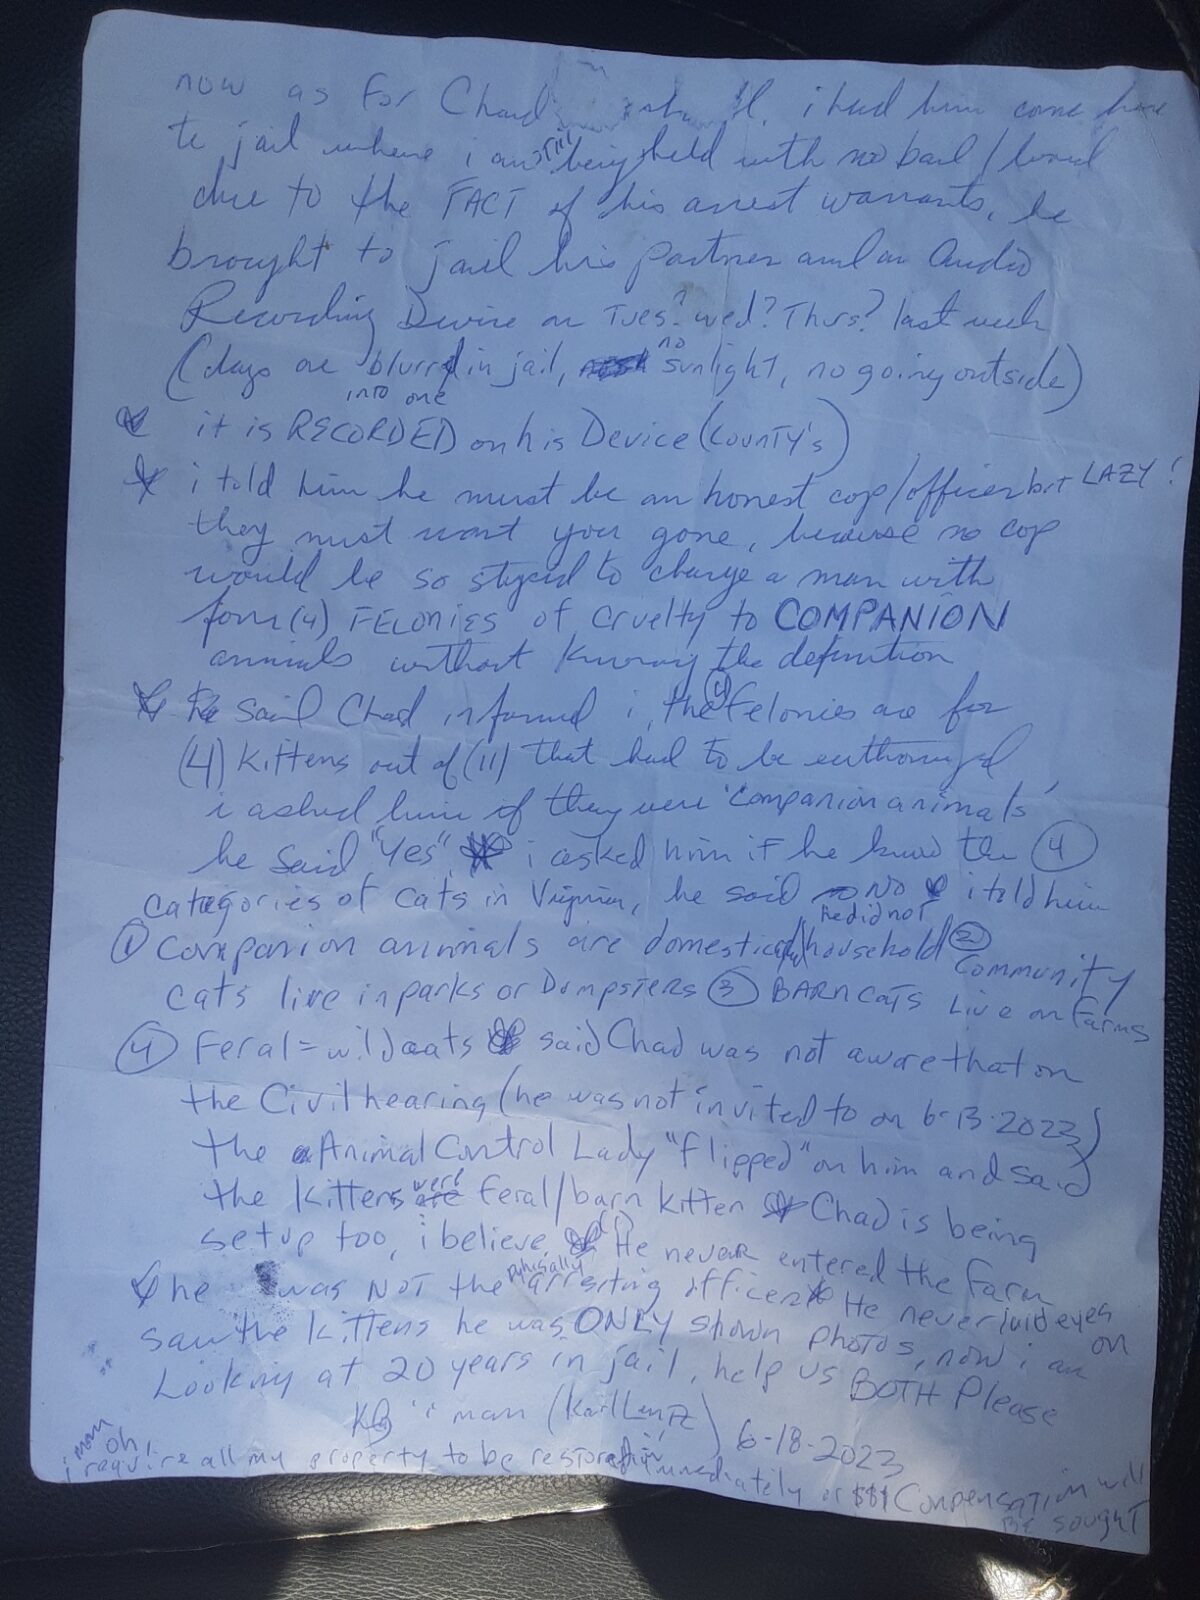 now as for Chad i had him come here
to jail where i am still being held with no bail/bond
due to the FACT of his arrest warrants, he
brought to jail his partner and an Audio
Recording Device on Tues? wed? Thurs? last week
(days are blurred into one in jail, no sunlight, no going outside)
it is RECORDED on his Device (County's)
i told him he must be an honest cop/officer but LAZY!
they must want you gone, because no cop
would be so stupid to charge a man with
four (4) FELONIES of cruelty to COMPANION
animals without knowing the definition
he said Chad informed i, the (4) felonies are for
(4) kittens out of (11) that had to be
i asked him if they were 'companion animals'
he said "yes" i asked him if he knew the (4)
categories of cats in Virginia, he said NO he did not i told him
(1) companion animals are domestic household (2) Community
cats live in parks or Dumpsters (3) BARN CATS Live on Farms
(4) Feral = wild cats said Chad was not aware that on
the Civil hearing (he was not invited to on 6-13-2023)
the Animal Control Lady "flipped" on him and said
the kittens were feral/barn kitten Chad is being
setup too, i believe. He never entered the farm
he was NOT the arresting officer He never laid eyes on
saw the kittens he was ONLY shown photos, now i am
Looking at 20 years in jail, help us BOTH Please
i man (Karl Lentz) 6-18-2023
oh! i man require all my property to be immediately or $$$ Compensation will
BE sought